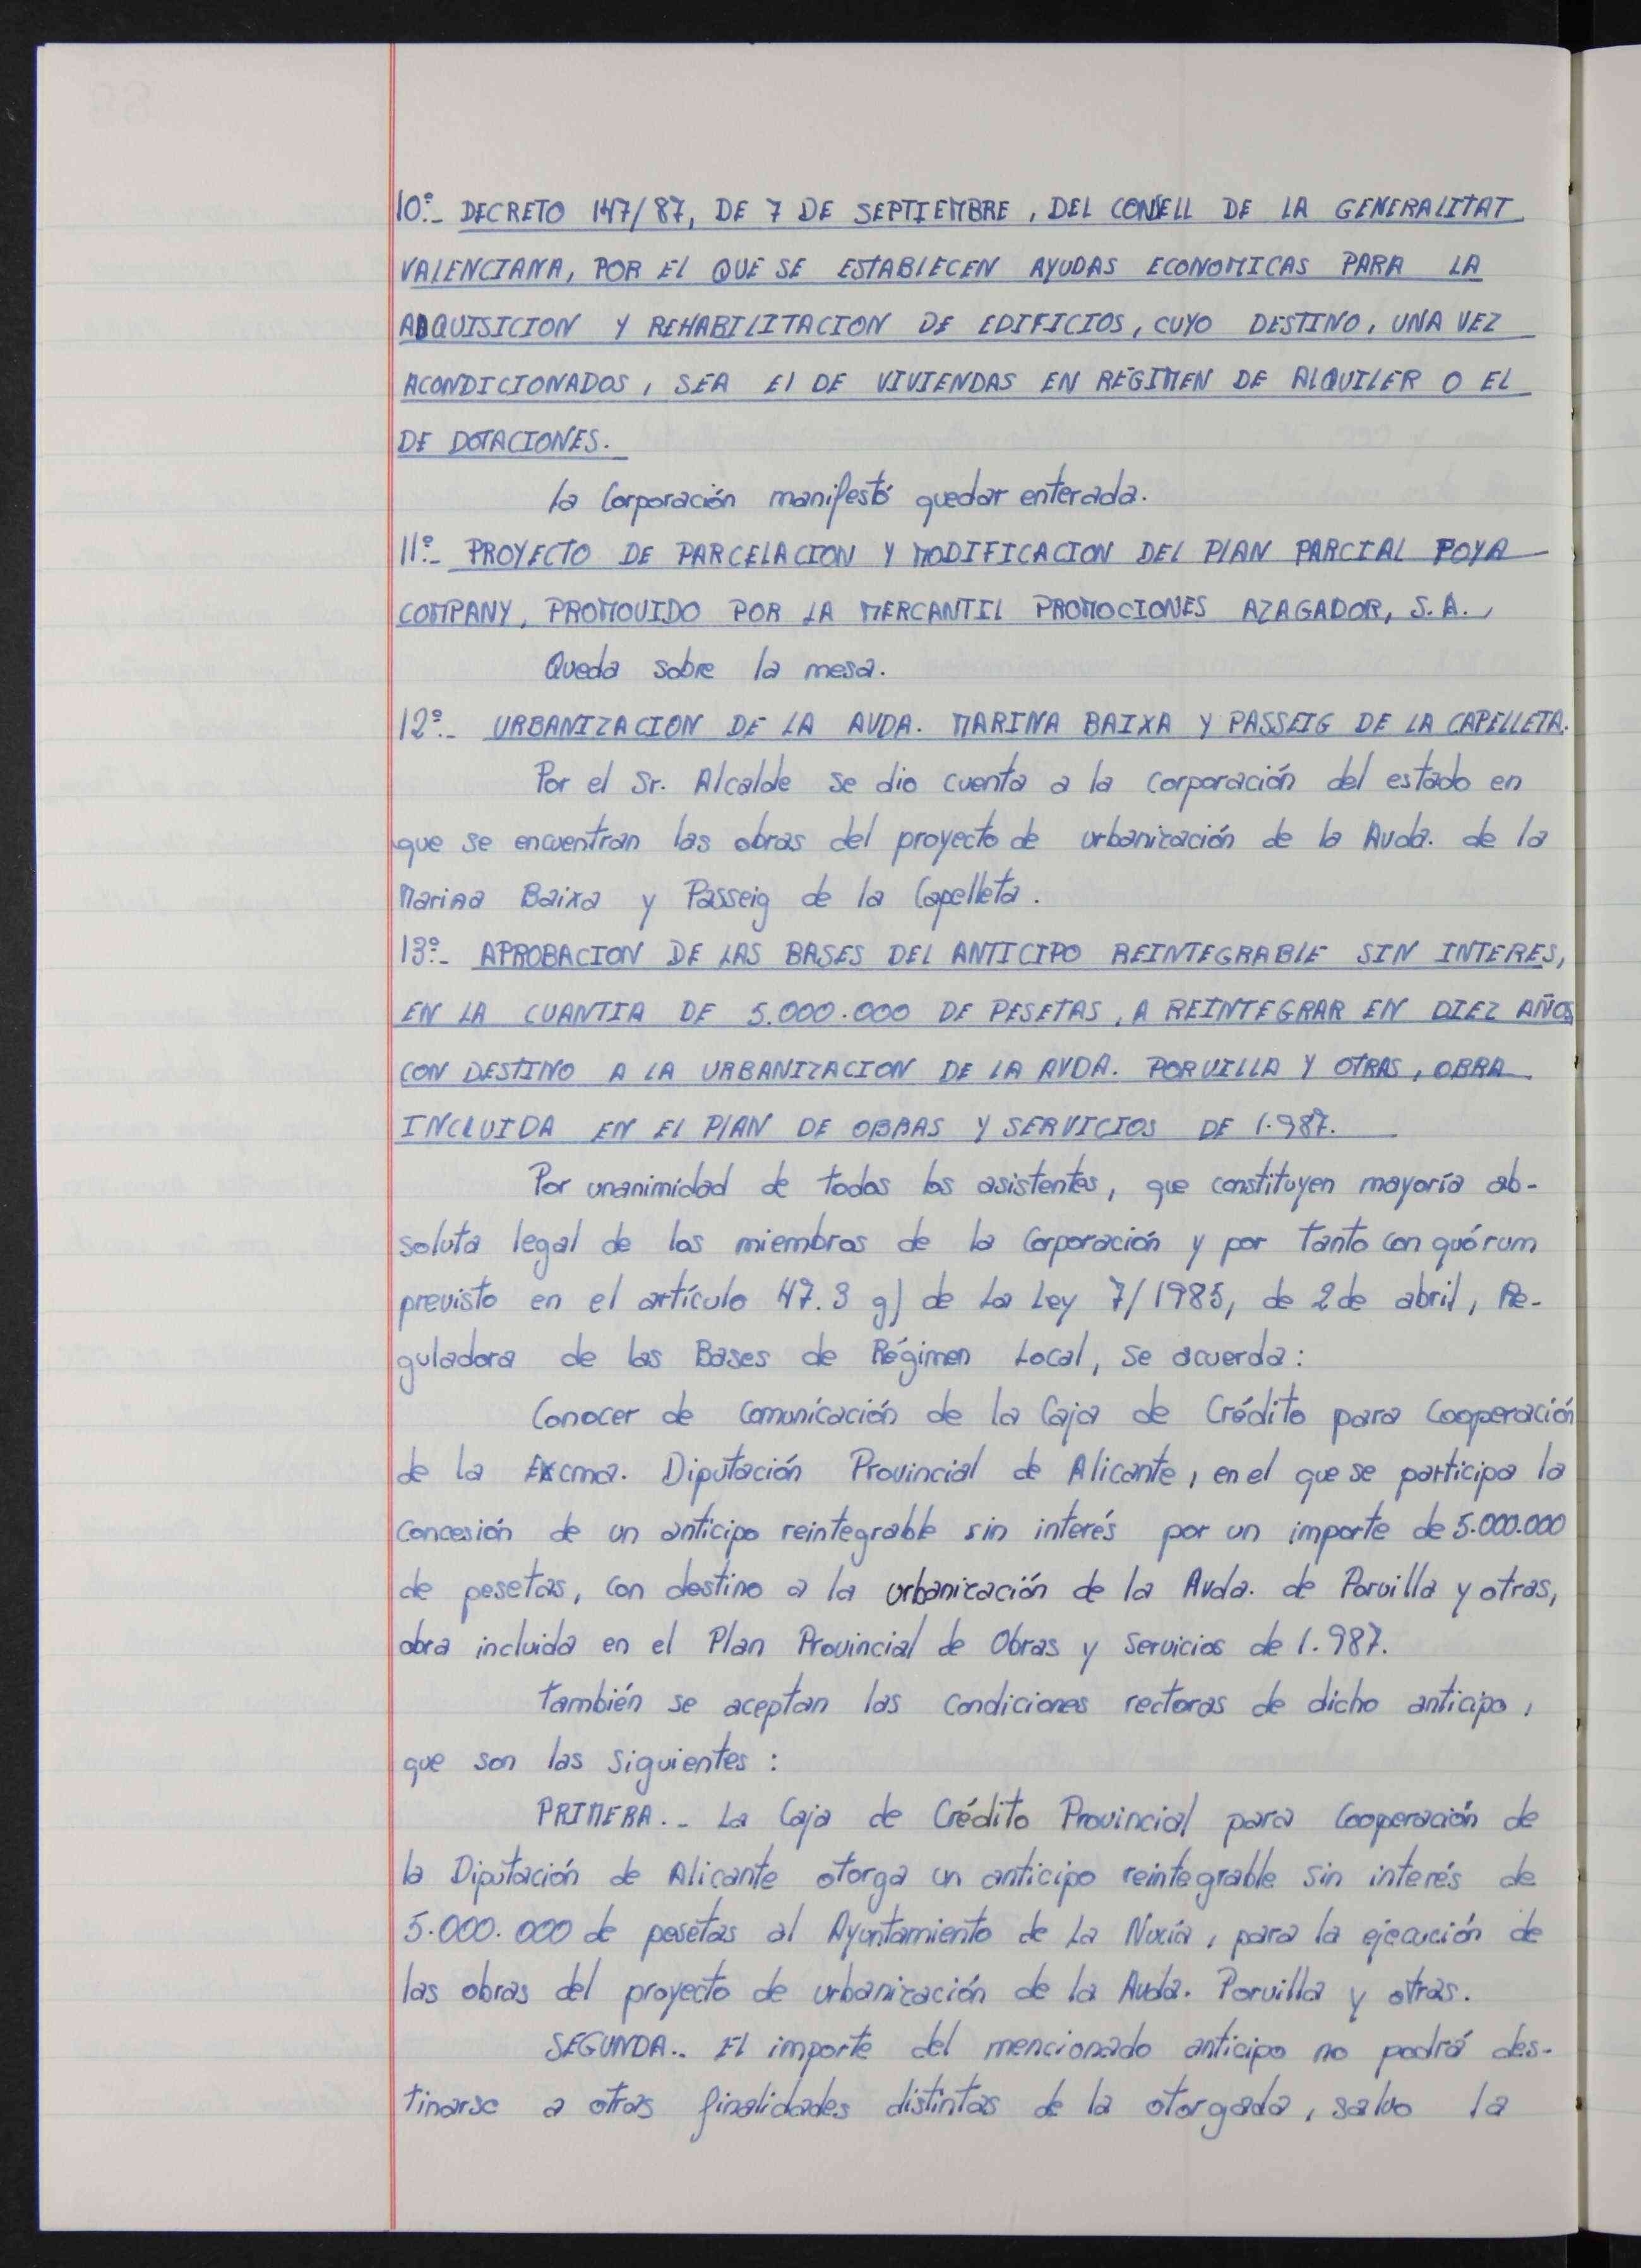 10º.- DECRETO 147/87, DE 7 DE SEPTIEMBRE, DEL CONSELL DE LA GENERALITAT
VALENCIANA, POR El QUE SE ESTABLECEN AYUDAS ECONOMICAS PARA LA
ADQUISICION Y REHABILITACION DE EDIFICIOS, CUYO DESTINO, UNA VEZ
ACONDICIONADOS, SEA El DE VIVIENDAS EN REGIMEN DE ALQUILER O EL
DE DOTACIONES.
La Corporación manifestó quedar enterada.
11º.- PROYECTO DE PARCELACION Y MODIFICACION DEL PLAN PARCIAL POYA
COMPANY, PROMOVIDO POR LA MERCANTIL PROMOCIONES AZAGADOR, S.A.
Queda sobre la mesa.
12º.- URBANIZACION DE LA AVDA. MARINA BAIXA Y PASSEIG DE LA CAPELLETA.
Por el Sr. Alcalde se dio cuenta a la Corporación del estado en
que se encuentran las obras del proyecto de urbanización de la Avda. de la
Marina Baixa y Passeig de la Capelleta.
13º.- APROBACION DE LAS BASES DEL ANTICIPO REINTEGRABLE SIN INTERES,
EN LA CUANTIA DE 5.000.000 DE PESETAS, A REINTEGRAR EN DIEZ AÑOS
CON DESTINO A LA URBANIZACION DE LA AVDA. PORVILLA Y OTRAS, OBRA
INCLUIDA EN El PLAN DE OBRAS Y SERVICIOS DE 1.987.
Por unanimidad de todos los asistentes, que constituyen mayoría ab-
soluta legal de los miembros de la Corporación y por tanto con quórum
previsto en el artículo 47.3 g) de La Ley 7/1985, de 2 de abril, Re-
guladora de las Bases de Régimen Local, se acuerda:
Conocer de comunicación de la Caja de Crédito para Cooperación
de la Excma. Diputación Provincial de Alicante, en el que se participa la
concesión de un anticipo reintegrable sin interés por un importe de 5.000.000
de pesetas, con destino a la urbanización de la Avda. de Porvilla y otras,
obra incluida en el Plan Provincial de Obras y Servicios de 1.987.
También se aceptan las condiciones rectoras de dicho anticipo,
que son las siguientes:
PRIMERA.- La Caja de Crédito Provincial para Cooperación de
la Diputación de Alicante otorga un anticipo reintegrable sin interés de
5.000.000 de pesetas al Ayuntamiento de La Nucía, para la ejecución de
las obras del proyecto de urbanización de la Avda. Porvilla y otras.
SEGUNDA.- El importe del mencionado anticipo no podrá des-
tinarse a otras finalidades distintas de la otorgada, salvo la